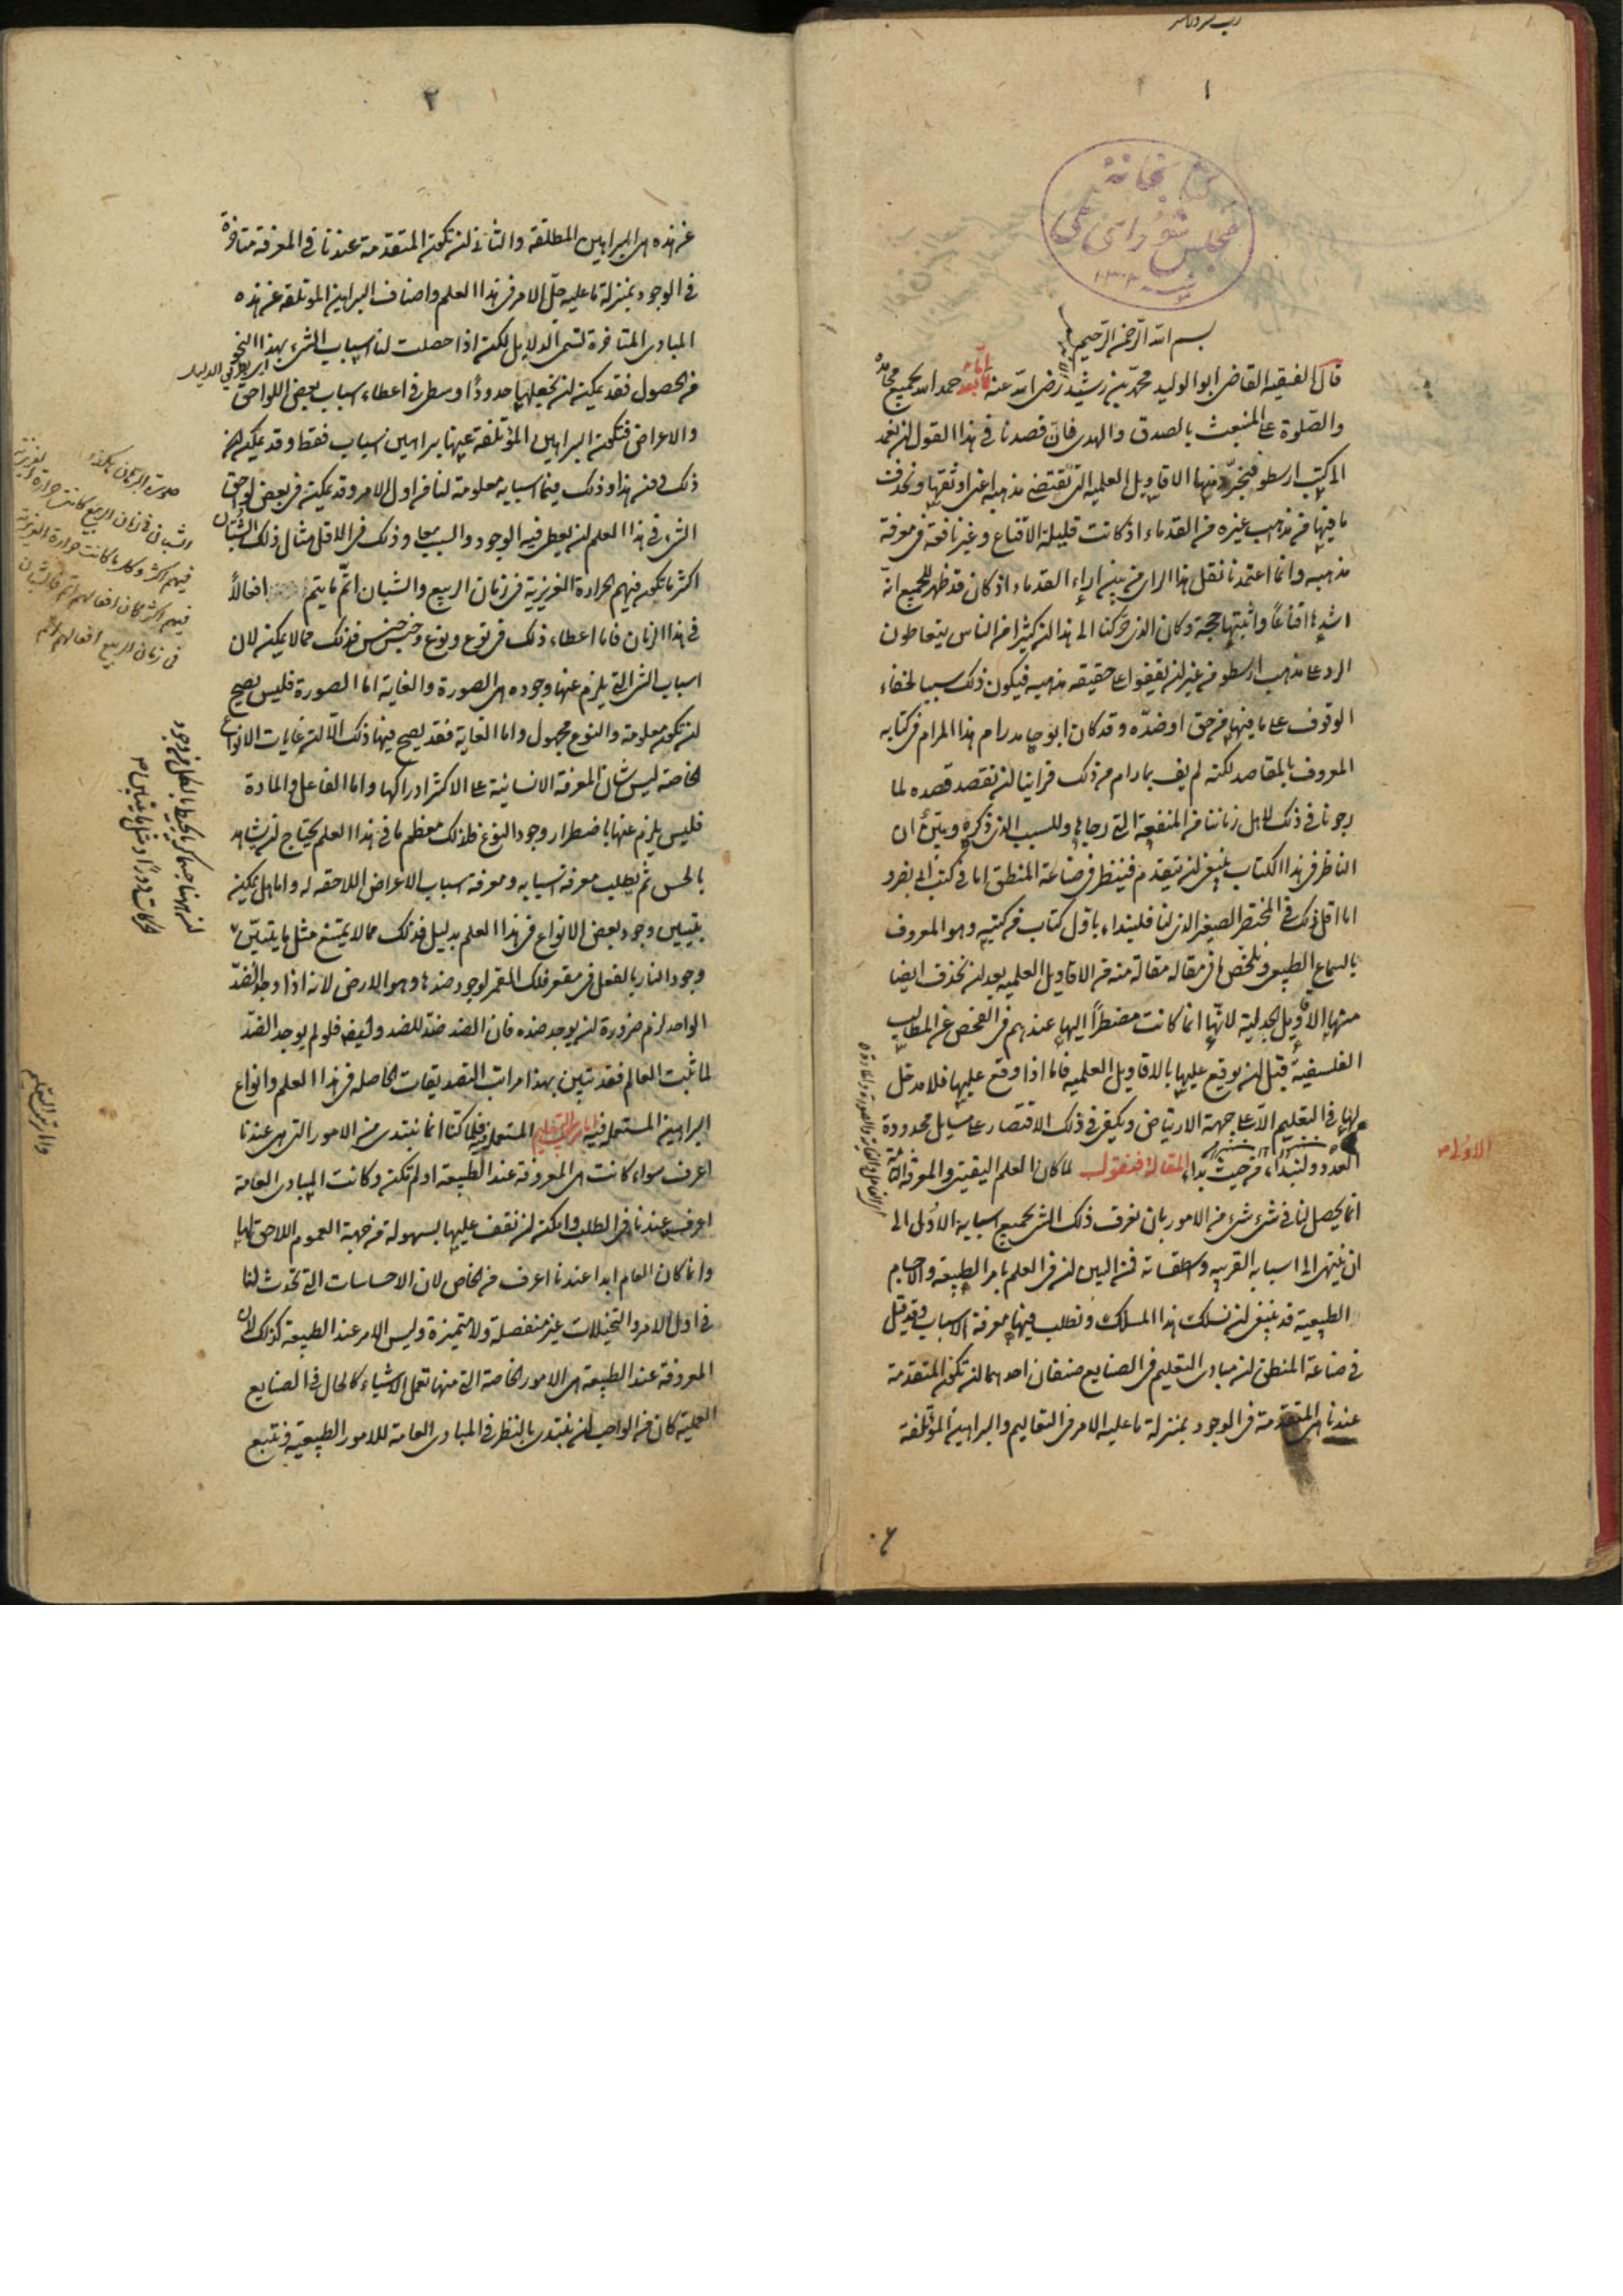 ١
كتابخانهٔ
مجلس شورای ملی
بسم الله الرحمن الرحيم
قال الفقيه القاضى ابو الوليد محمد بن رشيد رضى الله عنه اما بعد حمد الله بجميع محامده
والصلوة على المنبعث بالصدق والهدى فان قصدنا فى هذا القول ان نعمد
الى كتب ارسطو فنجرد منها الاقاويل العلمية التى تقتضى مذهبه اعنى اوثقها ونحذف
ما فيها من مذهب غيره من القدماء اذ كانت قليلة الاقناع وغير نافعة فى معرفة
مذهبه وانما اعتمدنا نقل هذا الراى من بين اراء القدماء اذ كان قد ظهر للجميع انه
اشدها اقناعا واثبتها حجة وكان الذى حركنا الى هذا ان كثيرا من الناس يتعاطون
الرد على مذهب ارسطو من غير ان يقفوا على حقيقة مذهبه فيكون ذلك سببا لخفاء
الوقوف على ما فيها من حق او ضده وقد كان ابو حامد رام هذا المرام فى كتابه
المعروف بالمقاصد لكنه لم يف بما رام من ذلك فراينا ان نقصد قصده لما
رجونا فى ذلك لاهل زماننا من المنفعة التى رجاها وللسبب الذى ذكره وبين ان
الناظر فى هذا الكتاب ينبغى ان يتقدم فينظر فى صناعة المنطق اما فى كتاب ابى نصر
اما اقل ذلك فى المختصر الصغير الذى لنا فلنبداء باول كتاب من كتبه وهو المعروف
بالسماع الطبيعى ونلخص ما فى مقالة مقالة منه من الاقاويل العلمية بعد ان نحذف ايضا
منها الاقاويل الجدلية لانها انما كانت مضطرا اليها عندهم فى الفحص عن المطالب
الفلسفية قبل ان يوقع عليها بالاقاويل العلمية فاما اذا وقع عليها فلا مدخل
لها فى التعليم الا على جهة الارتياض ويكفى فى ذلك الاقتصار على مسايل محدودة
العدد ولنبداء من حيث بداء المقالة فنقول لما كان العلم اليقينى والمعرفة التامة
الاولى
انما يحصل لنا فى شىء شىء من الامور بان نعرف ذلك الشى بجميع اسبابه الاول الى
ان ينتهى الى اسبابه القريبة واسطقساته فمن البين ان فى العلم بامر الطبيعة والاجسام
الطبيعية قد ينبغى ان نسلك هذا المسلك ونطلب فيها معرفة الاسباب وقد قيل
فى صناعة المنطق ان مبادى التعليم فى الصنايع صنفان احدهما ان تكون المتقدمة
عندنا هى المتقدمة فى الوجود بمنزلة ما عليه الامر فى التعاليم والبراهين المؤتلفة
٢
عن هذه هى البراهين المطلقة والثانى ان تكون المتقدمة عندنا فى المعرفة متاخرة
فى الوجود بمنزلة ما عليه جل الامر فى هذا العلم واصناف البراهين المؤتلفة عن هذه
المبادى المتاخرة تسمى الدلايل لكنه اذا حصلت لنا اسباب الشىء بهذا النحو
من الحصول فقد يمكن ان نجعلها حدودا وسطى فى اعطاء اسباب بعض اللواحق
والاعراض فتكون البراهين المؤتلفة عنها براهين اسباب فقط وقد يمكن
ذلك فى هذا وذلك فيما اسبابه معلومة لنا فى اول الامر وقد يمكن فى بعض لواحق
الشىء فى هذا العلم ان يعطى فيه الوجود والسبب معا وذلك فى الاقل مثال ذلك الشبان
اكثر ما تكون فيهم الحرارة الغريزية فى زمان الربيع والشبان اتم ما يتم افعالا
فى هذا الزمان فاما اعطاء ذلك فى نوع ونوع وجنس جنس فذلك مما لا يمكن لان
اسباب الشى التى يلزم عنها وجوده هى الصورة والغاية اما الصورة فليس يصح
ان تكون معلومة والنوع مجهول واما الغاية فقد يصح فيها ذلك الا ان غايات الانواع
الخاصة ليس شان المعرفة الانسانية على الاكثر ادراكها واما الفاعل والمادة
فليس يلزم عنها باضطرار وجود النوع فلذلك معظم ما فى هذا العلم يحتاج ان يشاهد
بالحس ثم نطلب معرفة اسبابه ومعرفة اسباب الاعراض اللاحقة له واما هل يمكن
تبيين وجود بعض الانواع فى هذا العلم بدليل فذلك مما لا يمتنع مثل ما يتبين
وجود النار بالفعل فى مقعر فلك القمر لوجود ضدها وهو الارض لانه اذا وجد الضد
الواحد لزم ضرورة ان يوجد ضده فان الضد ضد للضد فلو لم يوجد الضد
لما ثبت العالم فقد تبين بهذا مراتب التصديقات الحاصلة فى هذا العلم وانواع
البراهين المستعملة فيه المستعملة فلما كنا انما نبتدى من الامور التى هى عندنا
اعرف سواء كانت هى المعروفة عند الطبيعة او لم تكن وكانت المبادى العامة
اعرف عندنا فى الطلب وامكن ان نقف عليها بسهولة من جهة العموم اللاحق لها
وانما كان العام ابدا عندنا اعرف من الخاص لان الاحساسات التى تحدث لنا
فى اول الامر والتخيلات غير منفصلة ولا متميزة وليس الامر عند الطبيعة كذلك لان
المعروفة عند الطبيعة هى الامور الخاصة التى منها تعمل الاشياء كالحال فى الصنايع
العملية كان من الواجب ان نبتدى بالنظر فى المبادى العامة للامور الطبيعية ونتبع
صورة البرهان هكذا
الشبان فى زمان الربيع كانت حرارة الغريزية
فيهم اكثر وكلما كانت حرارة الغريزية
فيهم اكثر كان افعالهم اتم فالشبان
فى زمان الربيع افعالهم اتم